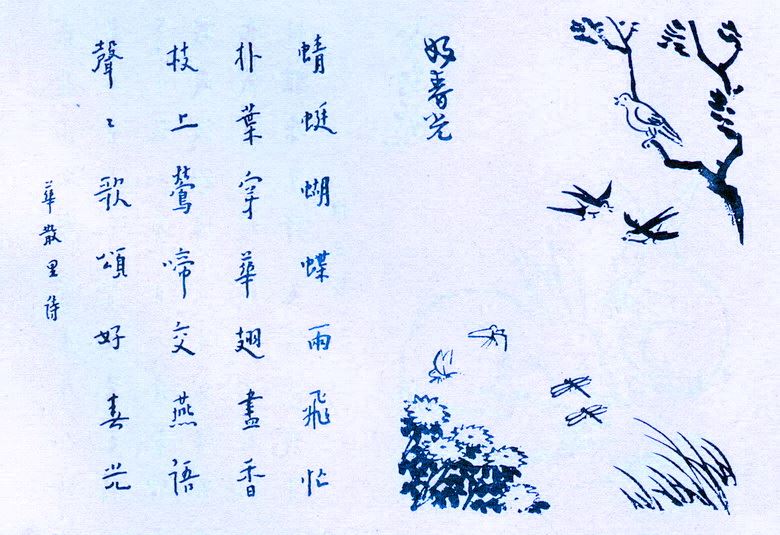 好春光
蜻蜓蝴蝶雨飛忙
朴葉穿華翅盡香
枝上鶯啼交燕語
聲〻歌頌好春光
華散里詩